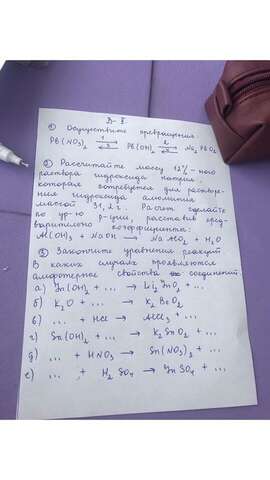 В-II
① Осуществите превращения:
Pb(NO₃)₂ 1⇄3 Pb(OH)₂ 2⇄ Na₂PbO₂
② Рассчитайте массу 12%-ного
раствора гидроксида натрия,
которая потребуется для растворе-
ния гидроксида алюминия
массой 31,2 г. Расчет сделайте
по ур-ю р-ции, расставив пред-
варительно коэффициенты:
Al(OH)₃ + NaOH → NaAlO₂ + H₂O
③ Закончите уравнения реакций
В каких случаях проявляются
амфотерные свойства соединений:
а) Zn(OH)₂ + ... → Li₂ZnO₂ + ...
б) K₂O + ... → K₂BeO₂
в) ... + HCl → AlCl₃ + ...
г) Sn(OH)₂ + ... → K₂SnO₂ + ...
д) ... + HNO₃ → Sn(NO₃)₂ + ...
е) ... + H₂SO₄ → ZnSO₄ + ...